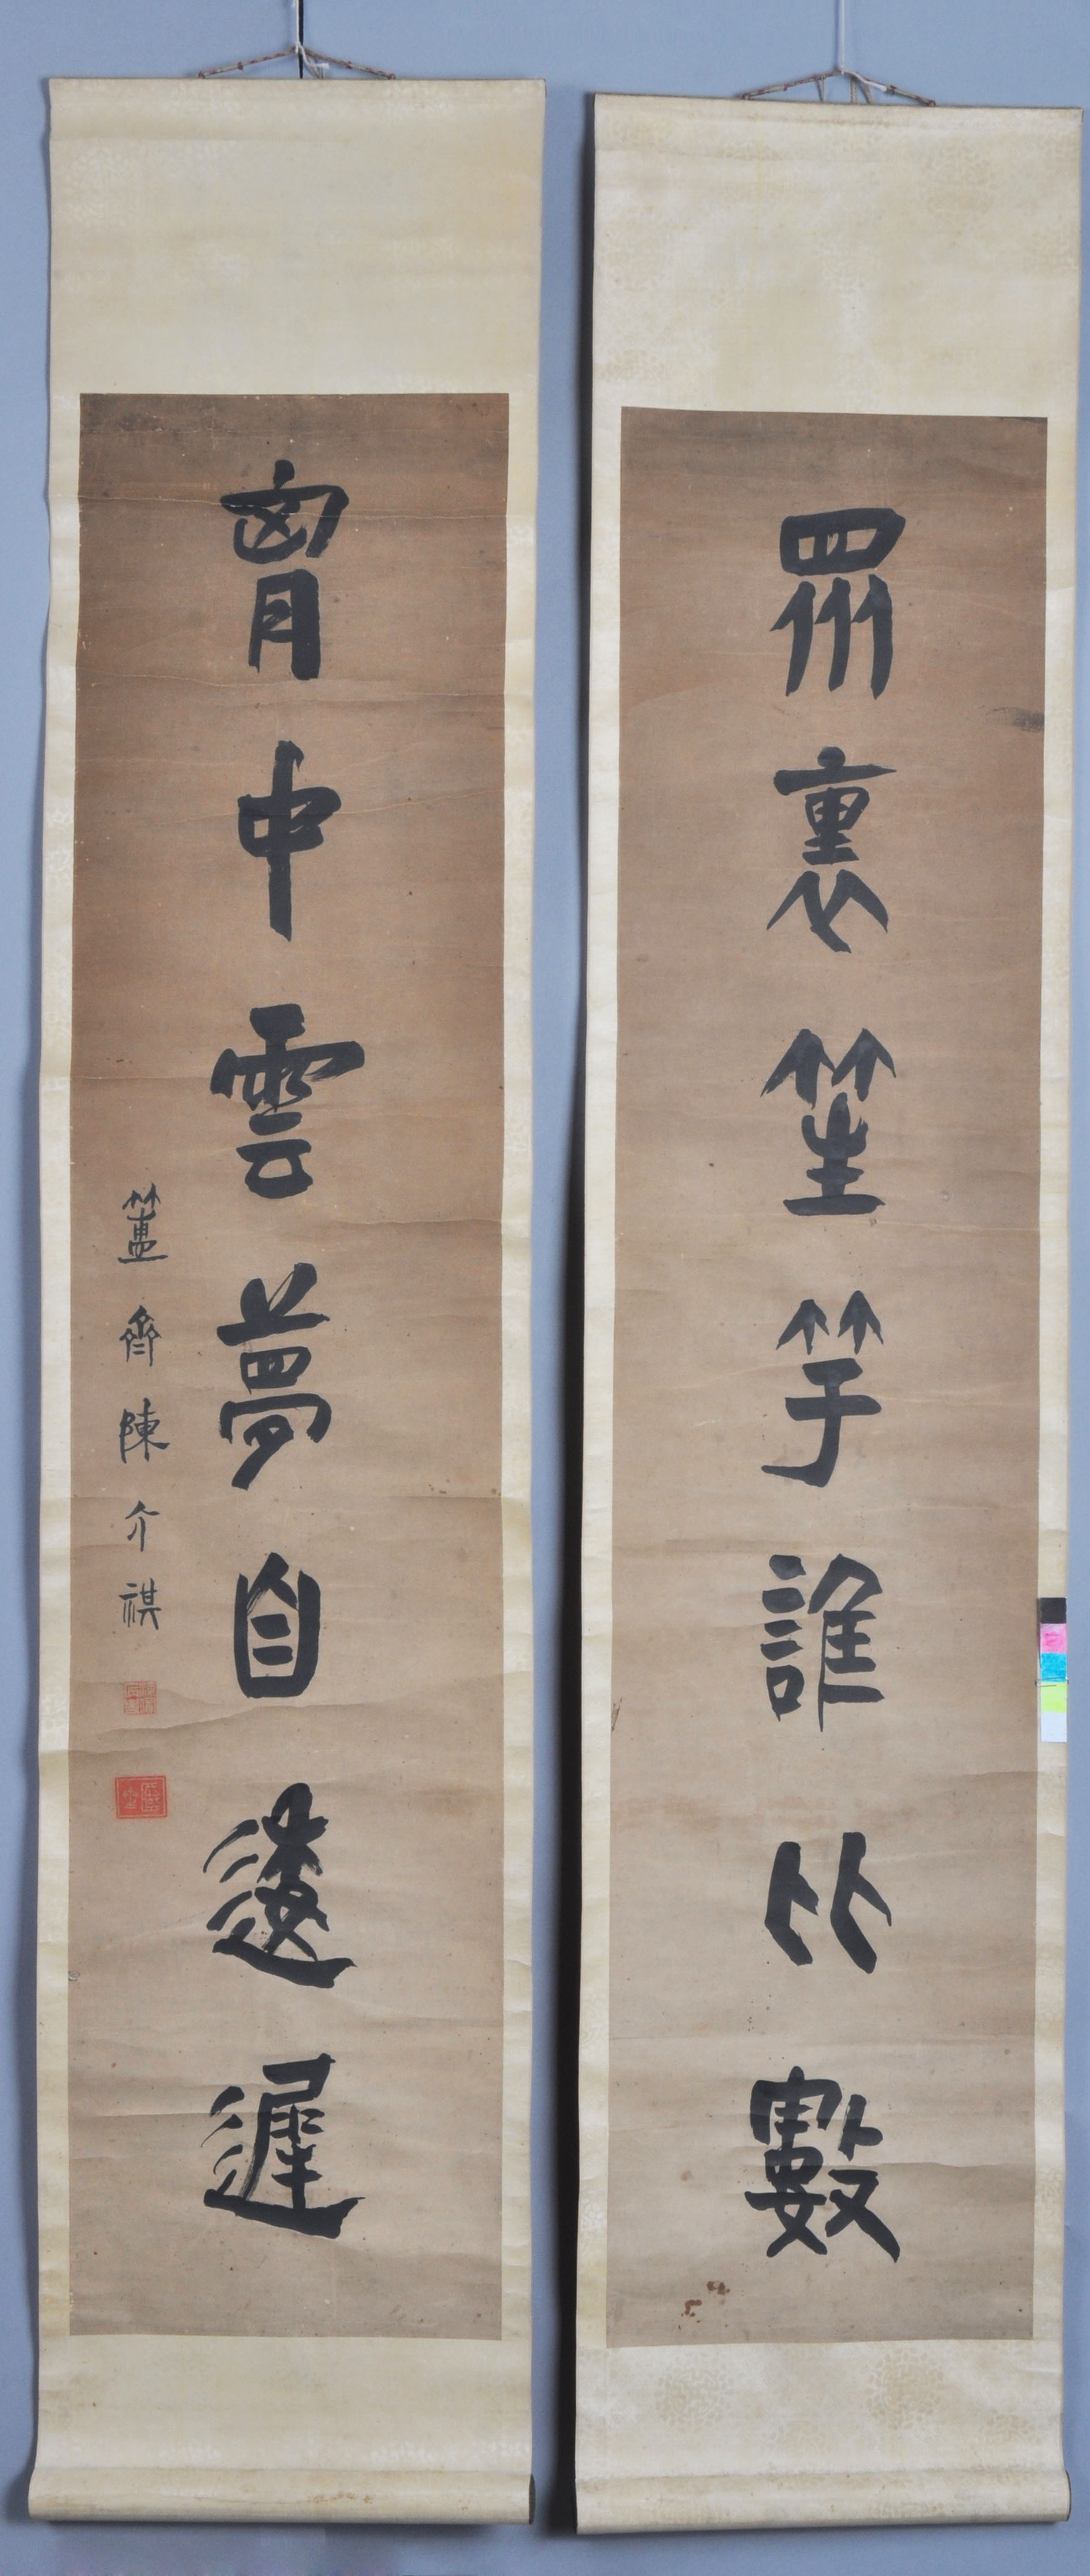 眾裏笙竽誰比數
胷中雲夢自逶遲
簠齊陳介祺